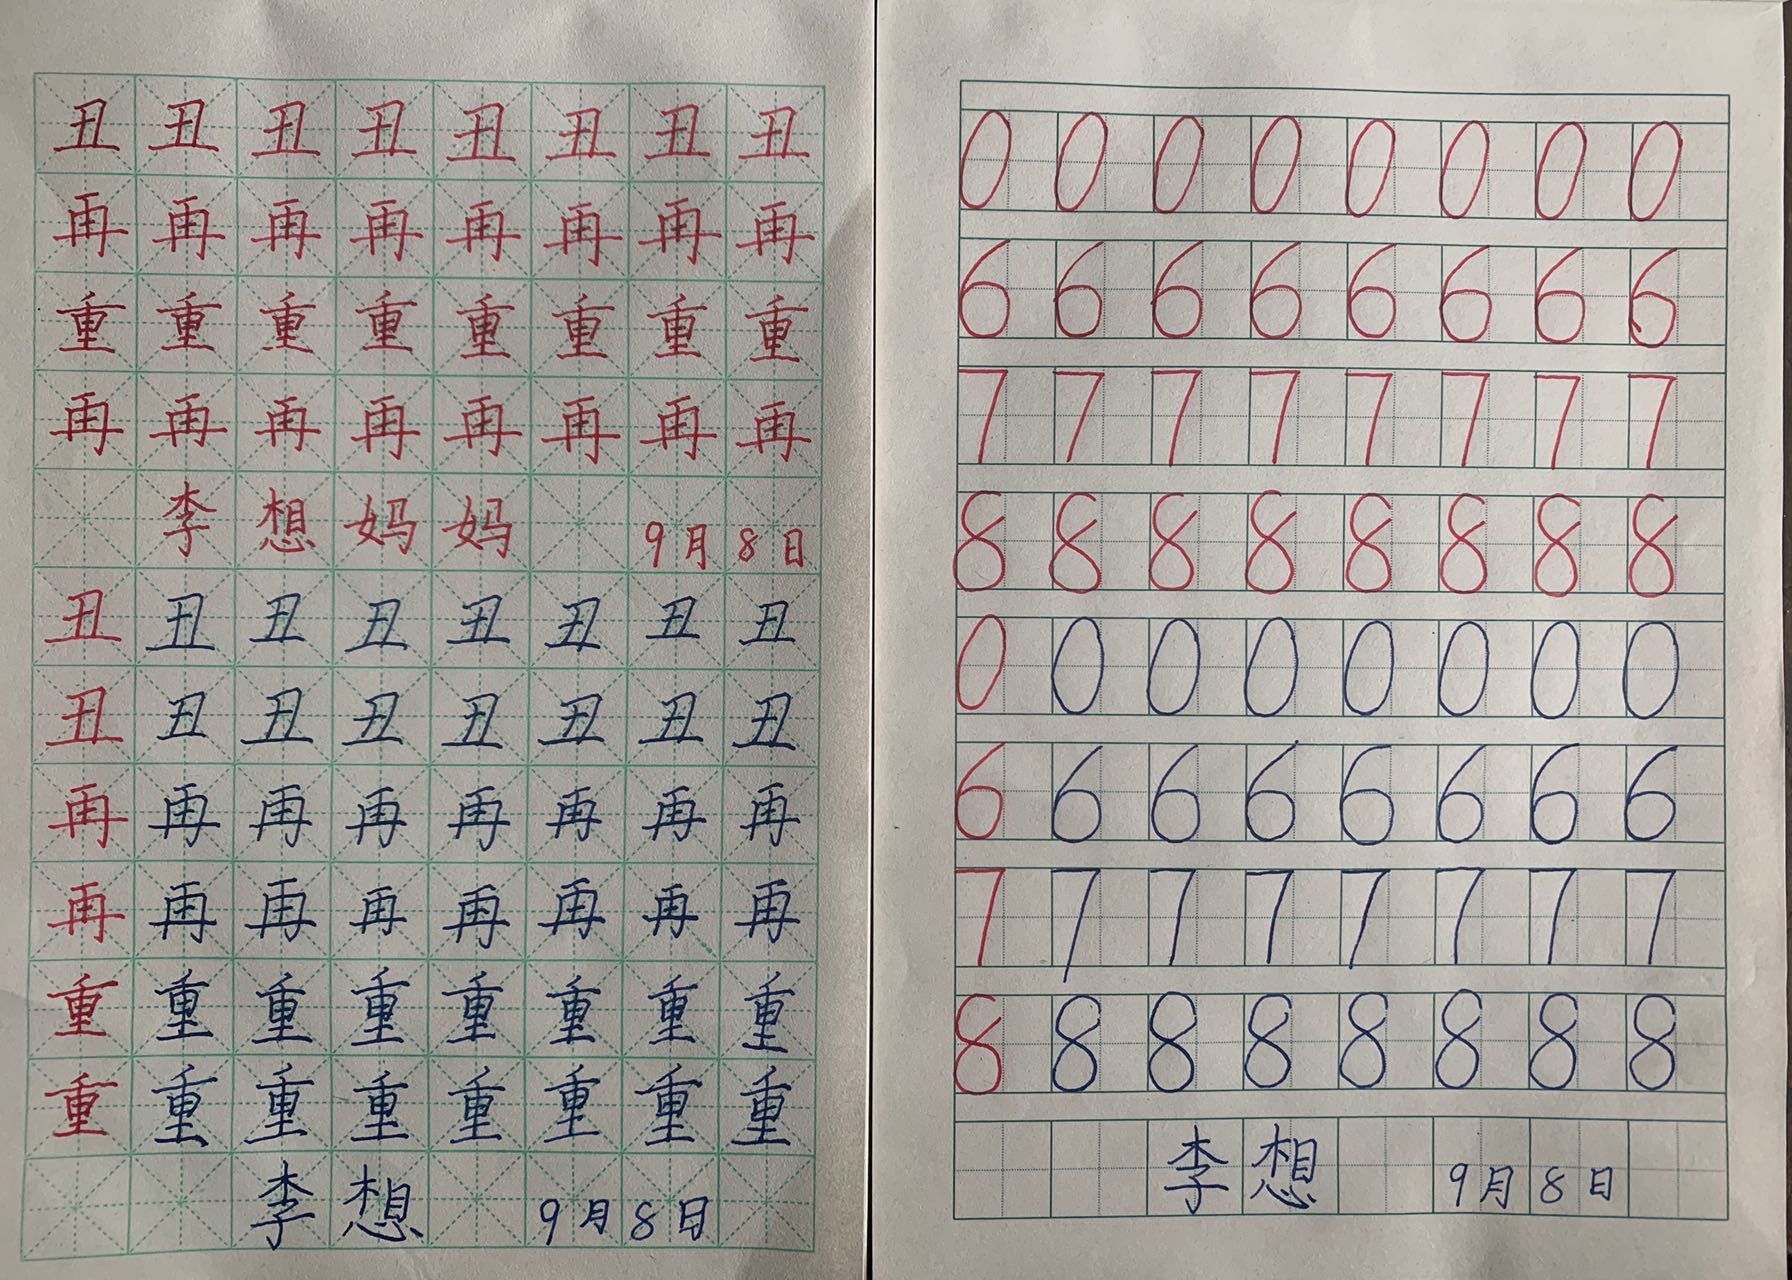 丑丑丑丑丑丑丑丑
再再再再再再再再
重重重重重重重重
再再再再再再再再
李想妈妈 9月8日
丑丑丑丑丑丑丑丑
丑丑丑丑丑丑丑丑
再再再再再再再再
再再再再再再再再
重重重重重重重重
重重重重重重重重
李想 9月8日
0 0 0 0 0 0 0 0
6 6 6 6 6 6 6 6
7 7 7 7 7 7 7 7
8 8 8 8 8 8 8 8
0 0 0 0 0 0 0 0
6 6 6 6 6 6 6 6
7 7 7 7 7 7 7 7
8 8 8 8 8 8 8 8
李想 9月8日